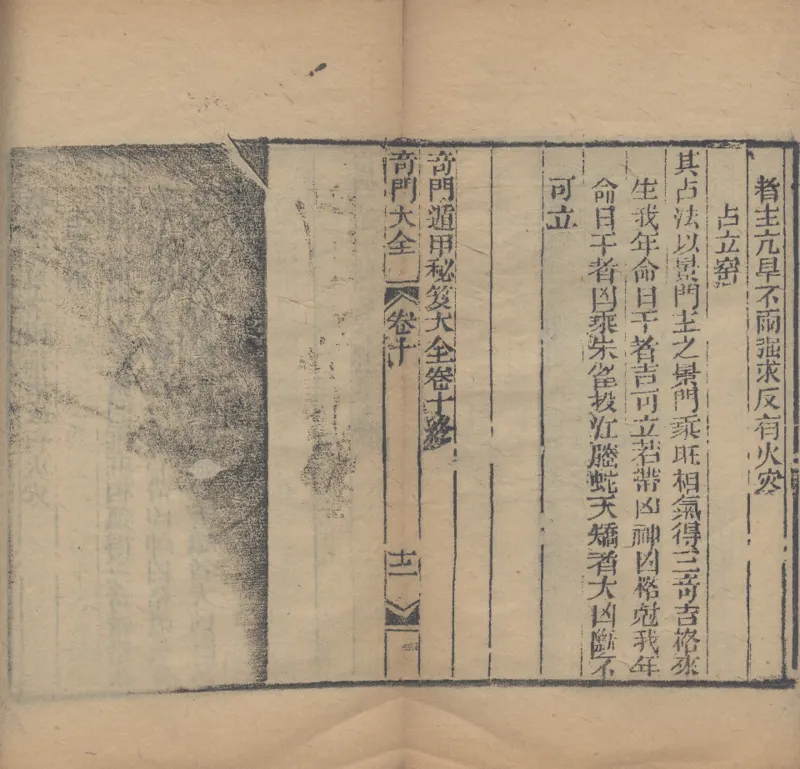 者主亢旱不雨强求反有火灾
占立窑
其占法以景門主之景門乘旺相氣得三奇吉格來
生我年命日干者吉可立若帶凶神凶格尅我年
命日干者凶乘朱雀投江螣蛇夭矯者大凶斷不
可立
奇門遁甲秘笈大全卷十終
奇門大全 卷十 十一